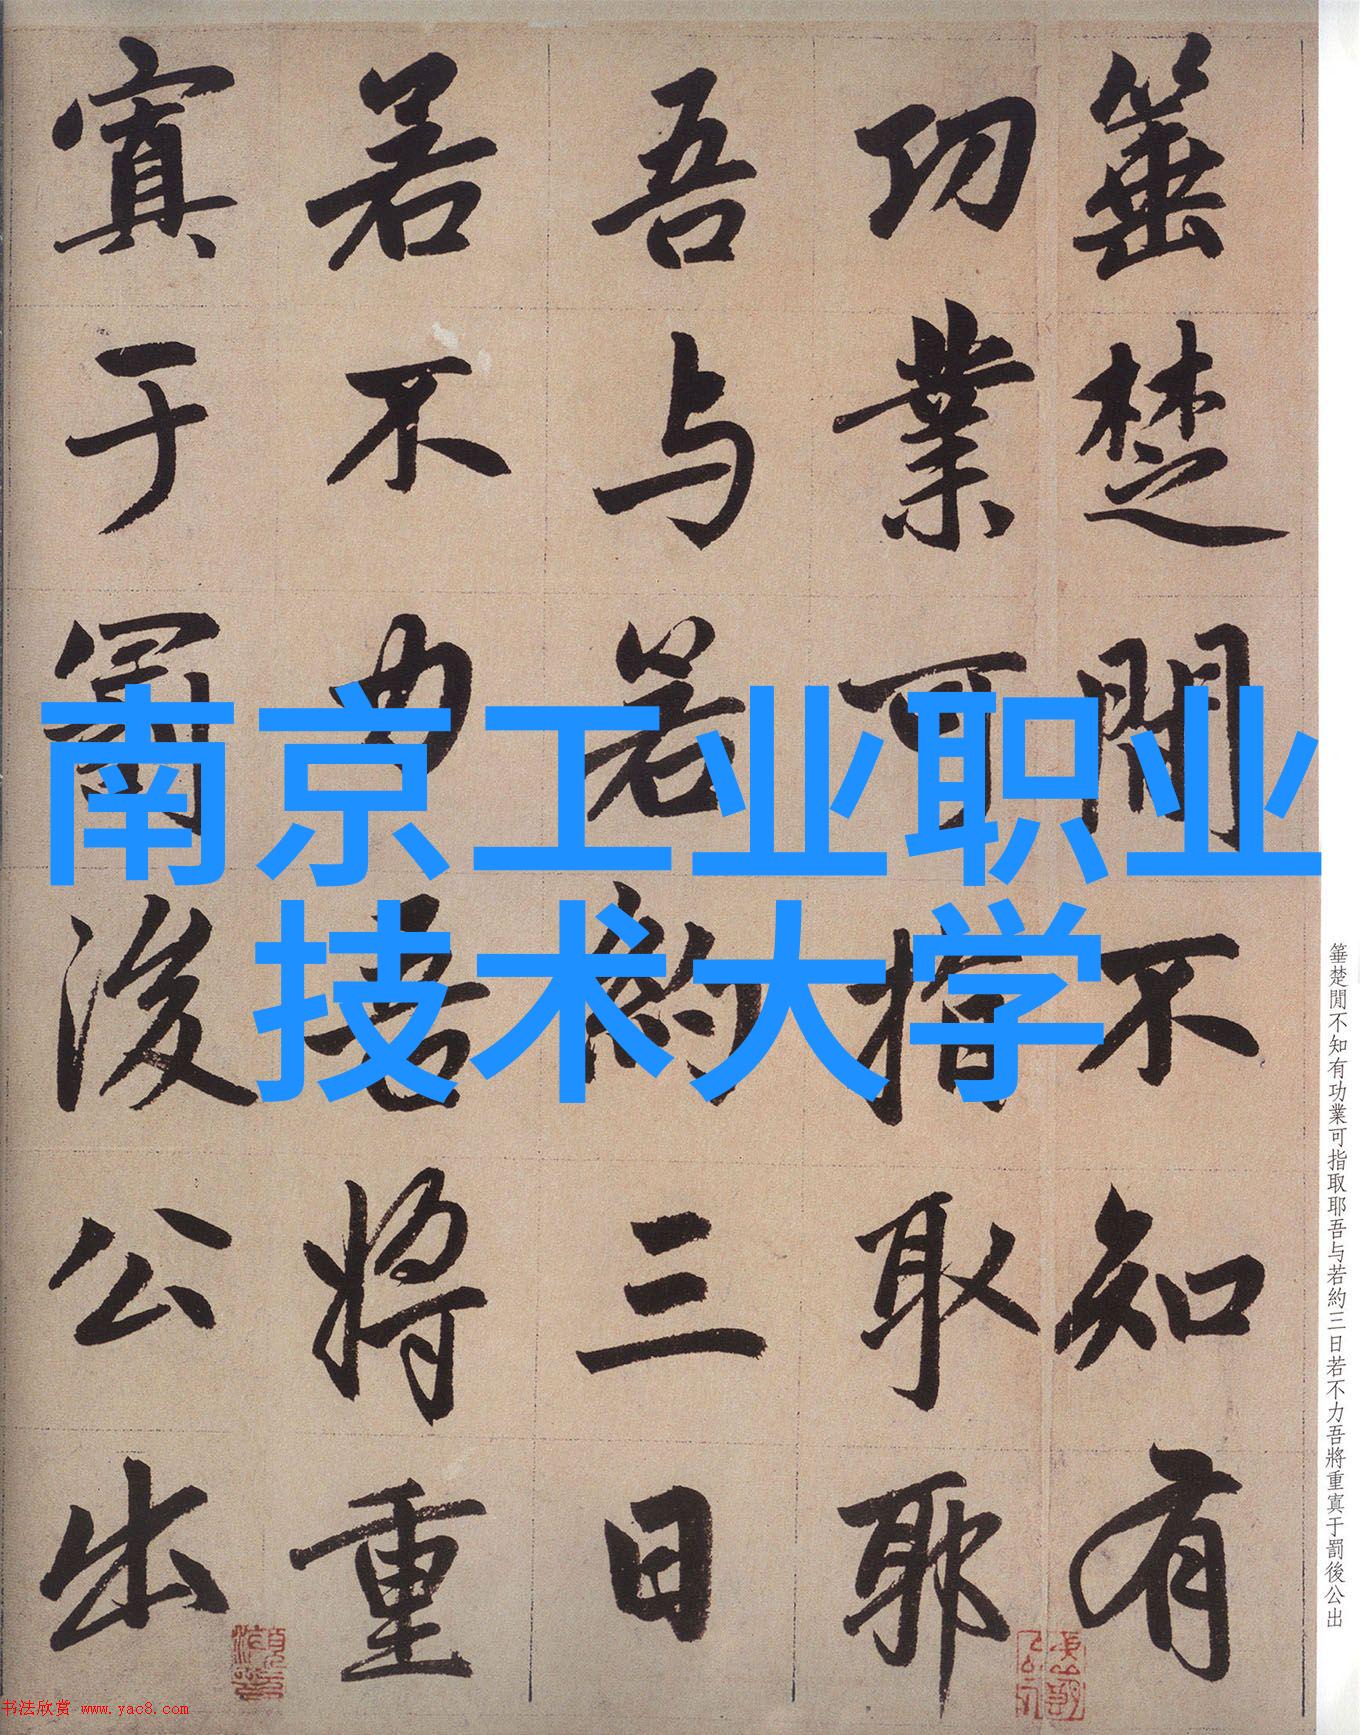 南京工业职业
技术大学
箠楚閒不知有
功業可指取耶
吾与若約三日
若不力吾將重
寘于罰後公出
箠楚閒不知有功業可指取耶吾与若約三日若不力吾將重寘于罰後公出
书法欣赏 www.yac8.com